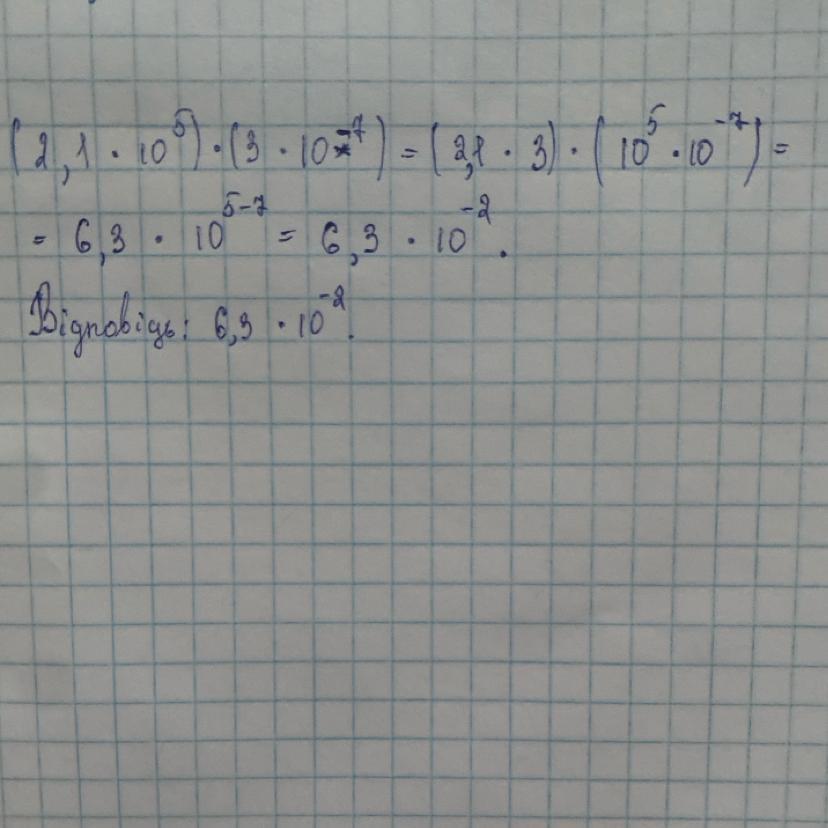 (2,1 · 10⁵) · (3 · 10⁻⁷) = (2,1 · 3) · (10⁵ · 10⁻⁷) =
= 6,3 · 10⁵⁻⁷ = 6,3 · 10⁻².
Відповідь: 6,3 · 10⁻².